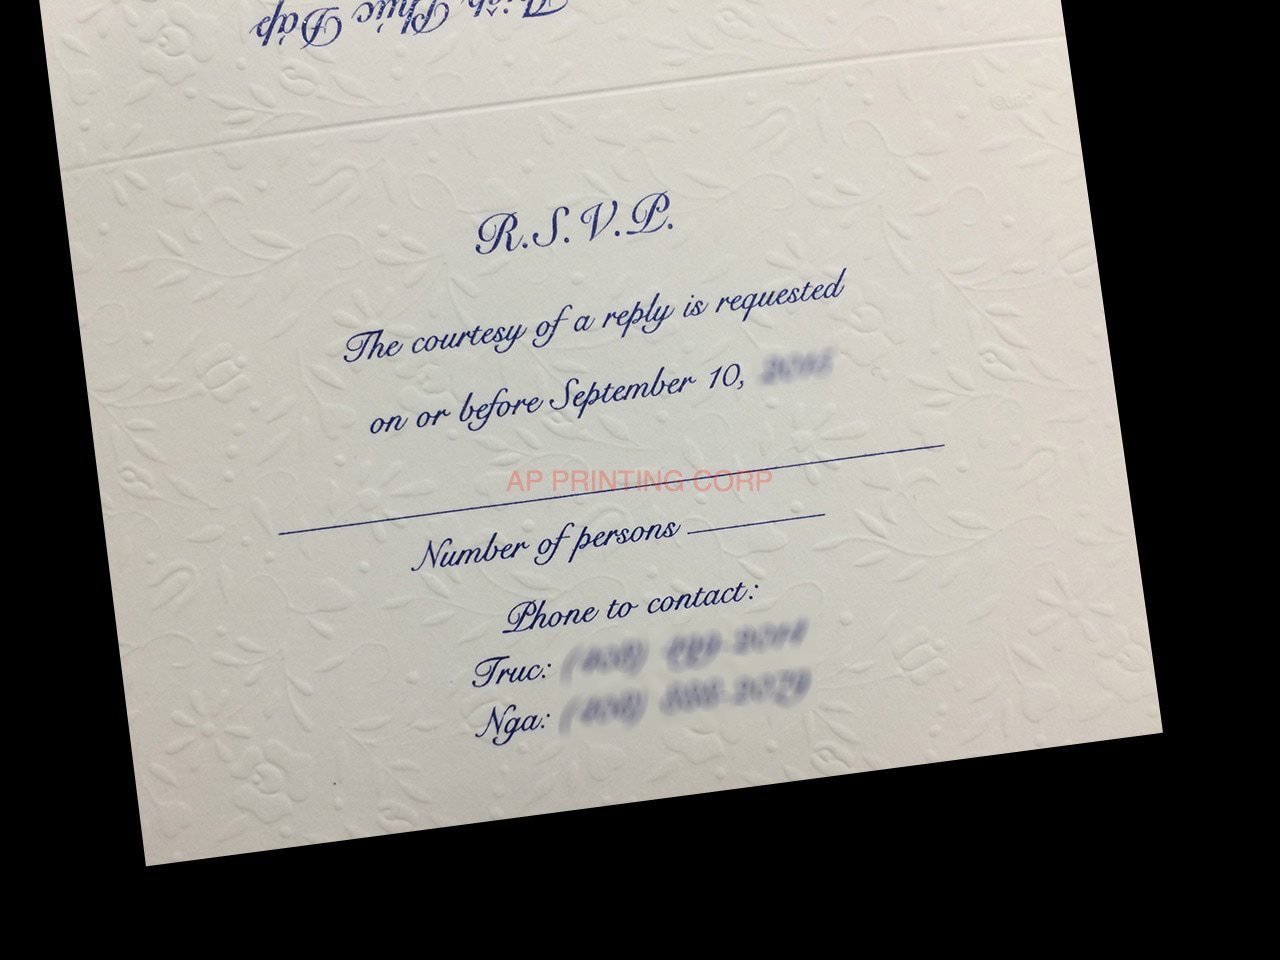 Thiệp Phúc Đáp
©JRC
R.S.V.P.
The courtesy of a reply is requested
on or before September 10,
AP PRINTING CORP
Number of persons
Phone to contact:
Truc:
Nga: